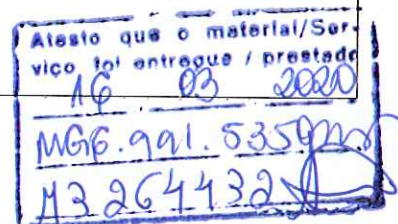 Atesto que o material/Ser-
viço foi entregue / prestado
16 03 2020
MG6.991.535
M3264432